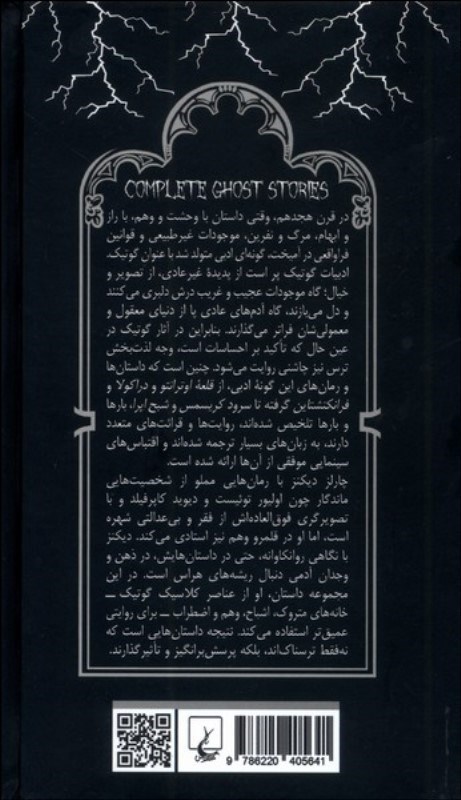 COMPLETE GHOST STORIES
در قرن هجدهم، وقتی داستان با وحشت و وهم، با راز
و ابهام، مرگ و نفرین، موجودات غیرطبیعی و قوانین
فراواقعی در آمیخت، گونه‌ای ادبی متولد شد با عنوان گوتیک.
ادبیات گوتیک پر است از پدیدهٔ غیرعادی، از تصویر و
خیال؛ گاه موجودات عجیب و غریب درش دلبری می‌کنند
و دل می‌بازند، گاه آدم‌های عادی پا از دنیای معقول و
معمولی‌شان فراتر می‌گذارند. بنابراین در آثار گوتیک در
عین حال که تأکید بر احساسات است، وجه لذت‌بخش
ترس نیز چاشنی روایت می‌شود. چنین است که داستان‌ها
و رمان‌های این گونهٔ ادبی، از قلعهٔ اوترانتو و دراکولا و
فرانکنشتاین گرفته تا سرود کریسمس و شبح اپرا، بارها
و بارها تلخیص شده‌اند، روایت‌ها و قرائت‌های متعدد
دارند، به زبان‌های بسیار ترجمه شده‌اند و اقتباس‌های
سینمایی موفقی از آن‌ها ارائه شده است.
چارلز دیکنز با رمان‌هایی مملو از شخصیت‌هایی
ماندگار چون اولیور توئیست و دیوید کاپرفیلد و با
تصویرگری فوق‌العاده‌اش از فقر و بی‌عدالتی شهره
است، اما او در قلمرو وهم نیز استادی می‌کند. دیکنز
با نگاهی روانکاوانه، حتی در داستان‌هایش، در ذهن و
وجدان آدمی دنبال ریشه‌های هراس است. در این
مجموعه داستان، او از عناصر کلاسیک گوتیک ــ
خانه‌های متروک، اشباح، وهم و اضطراب ــ برای روایتی
عمیق‌تر استفاده می‌کند. نتیجه داستان‌هایی است که
نه‌فقط ترسناک‌اند، بلکه پرسش‌برانگیز و تأثیرگذارند.
9 786220 405641